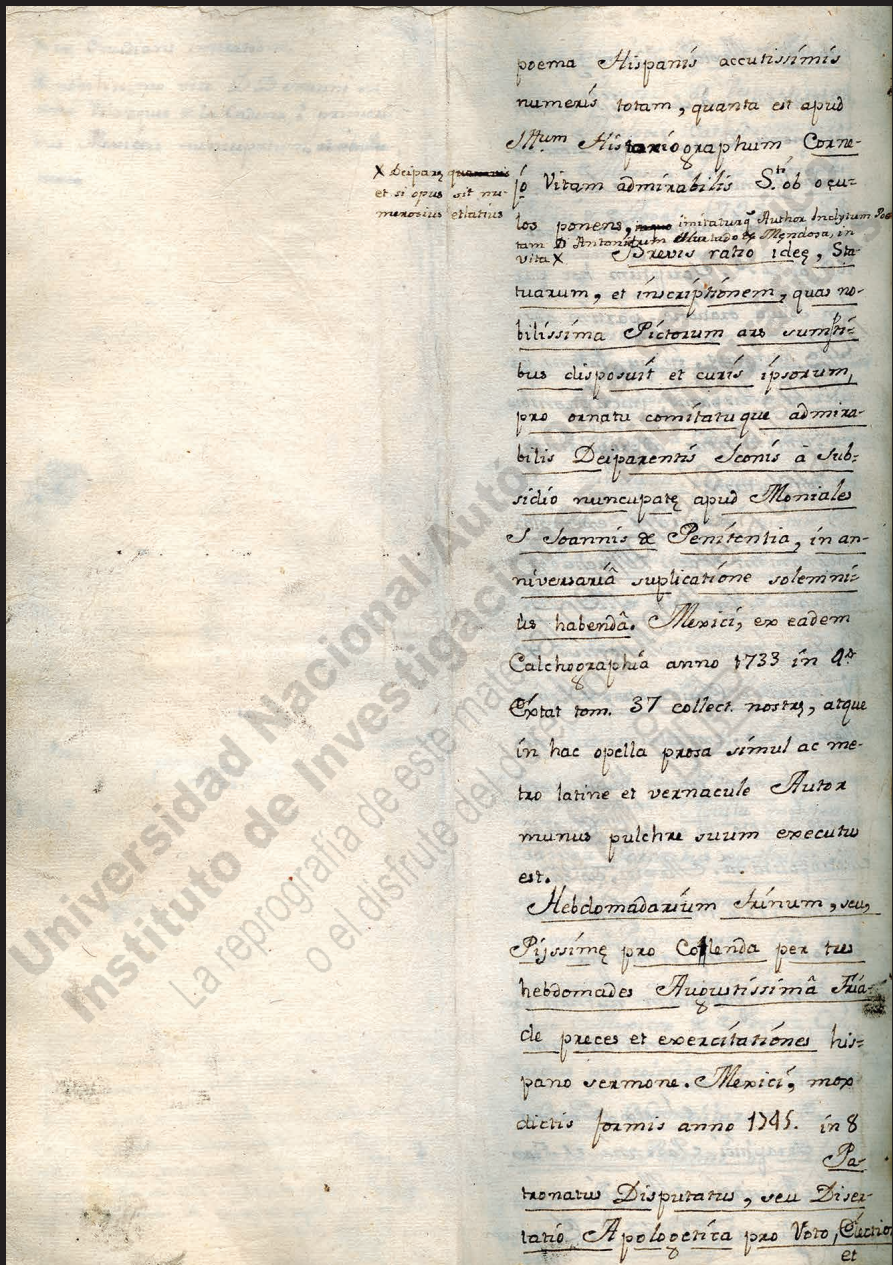 poema Hispanis accutissimis
numeris totam, quanta est apud
Illum Historiographum Corne-
jo Vitam admirabilis S.ti ob ocu-
los ponens, imitaturq̃ Author Inclytum Poe
tam D Antonium Hurtado de Mendosa, in
vita X
X Deiparę quamvis
et si opus sit nu-
merosius et latius
Brevis ratio ideę, Sta-
tuarum, et inscriptionem, quas no-
bilissima Pictorum ars sumpti-
bus disposuit et curis ipsorum,
pro ornatu comitatuque admira-
bilis Deiparentis Iconis â Sub-
sidio nuncupatę apud Moniales
S Joannis de Penitentia, in an-
niversariâ suplicatione solemni-
us habendâ. Mexici, ex eadem
Calchographiâ anno 1733 in 4º
Extat tom. 37 collect. nostrę, atque
in hac opella prosa simul ac me-
tro latine et vernacule Autor
munus pulchre suum executus
est.
Hebdomadarium Trinum, seu,
Pijssimę pro Collenda per tres
hebdomades Augustissimâ Tria-
de preces et exercitationes his-
pano sermone. Mexici, mox
dictis formis anno 1745. in 8
Pa-
tronatus Disputatus, seu Diser-
tatio Apologetica pro Voto, Election
et
Universidad Nacional Autónoma
Instituto de Investigaciones
La reprografía de este material
o el disfrute del derecho